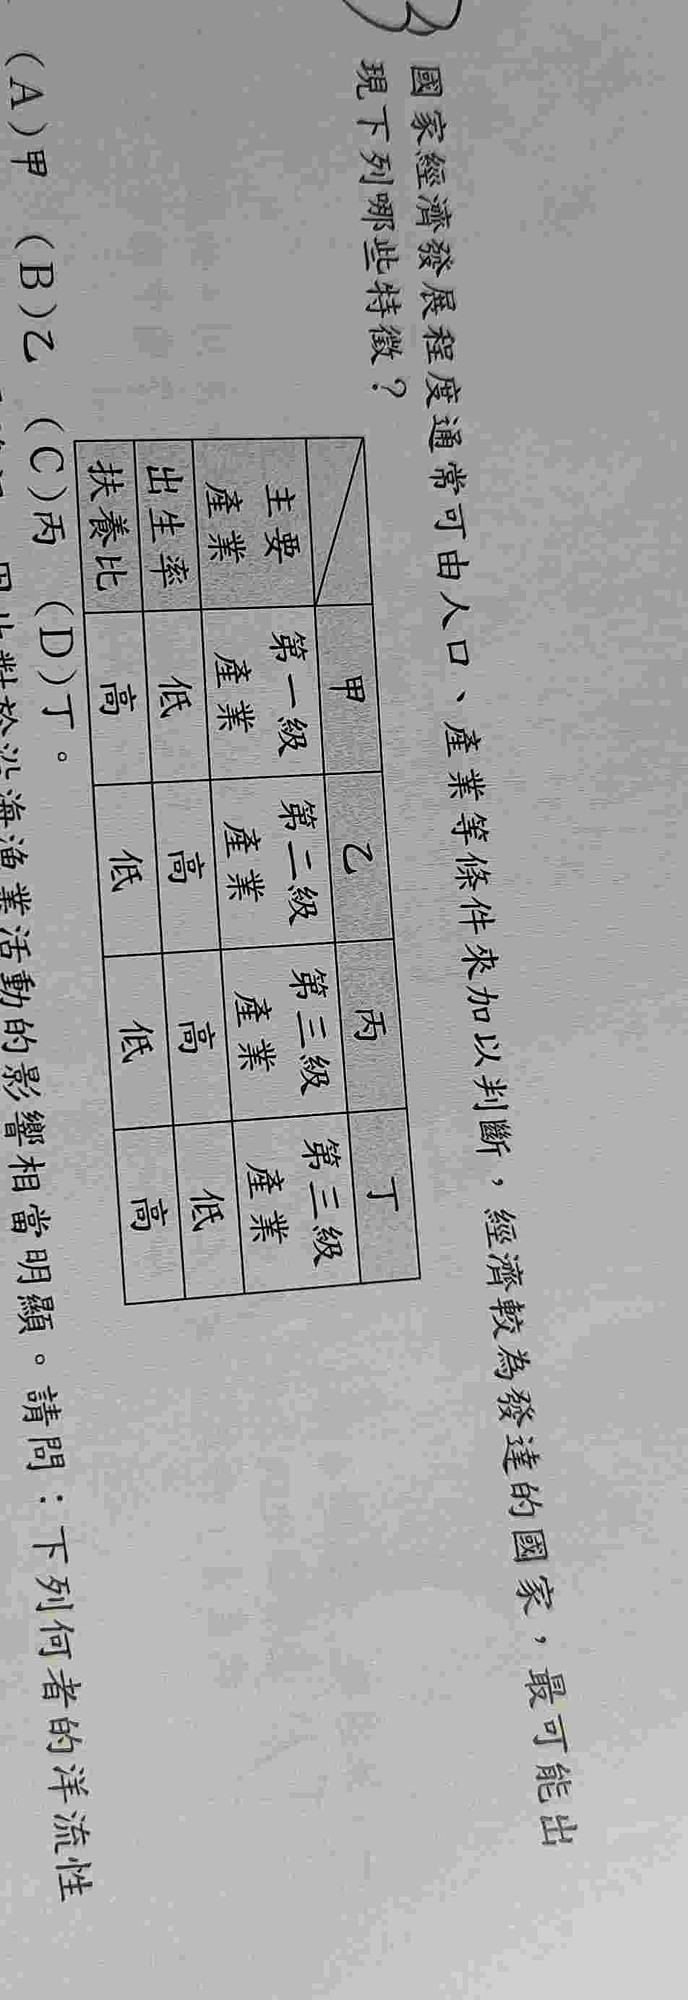 國家經濟發展程度通常可由人口、產業等條件來加以判斷，經濟較為發達的國家，最可能出
現下列哪些特徵？
甲 乙 丙 丁
主要產業 第一級產業 第二級產業 第三級產業 第三級產業
出生率 低 高 高 低
扶養比 高 低 低 高
(A)甲 (B)乙 (C)丙 (D)丁。
因此對於沿海漁業活動的影響相當明顯。請問：下列何者的洋流性